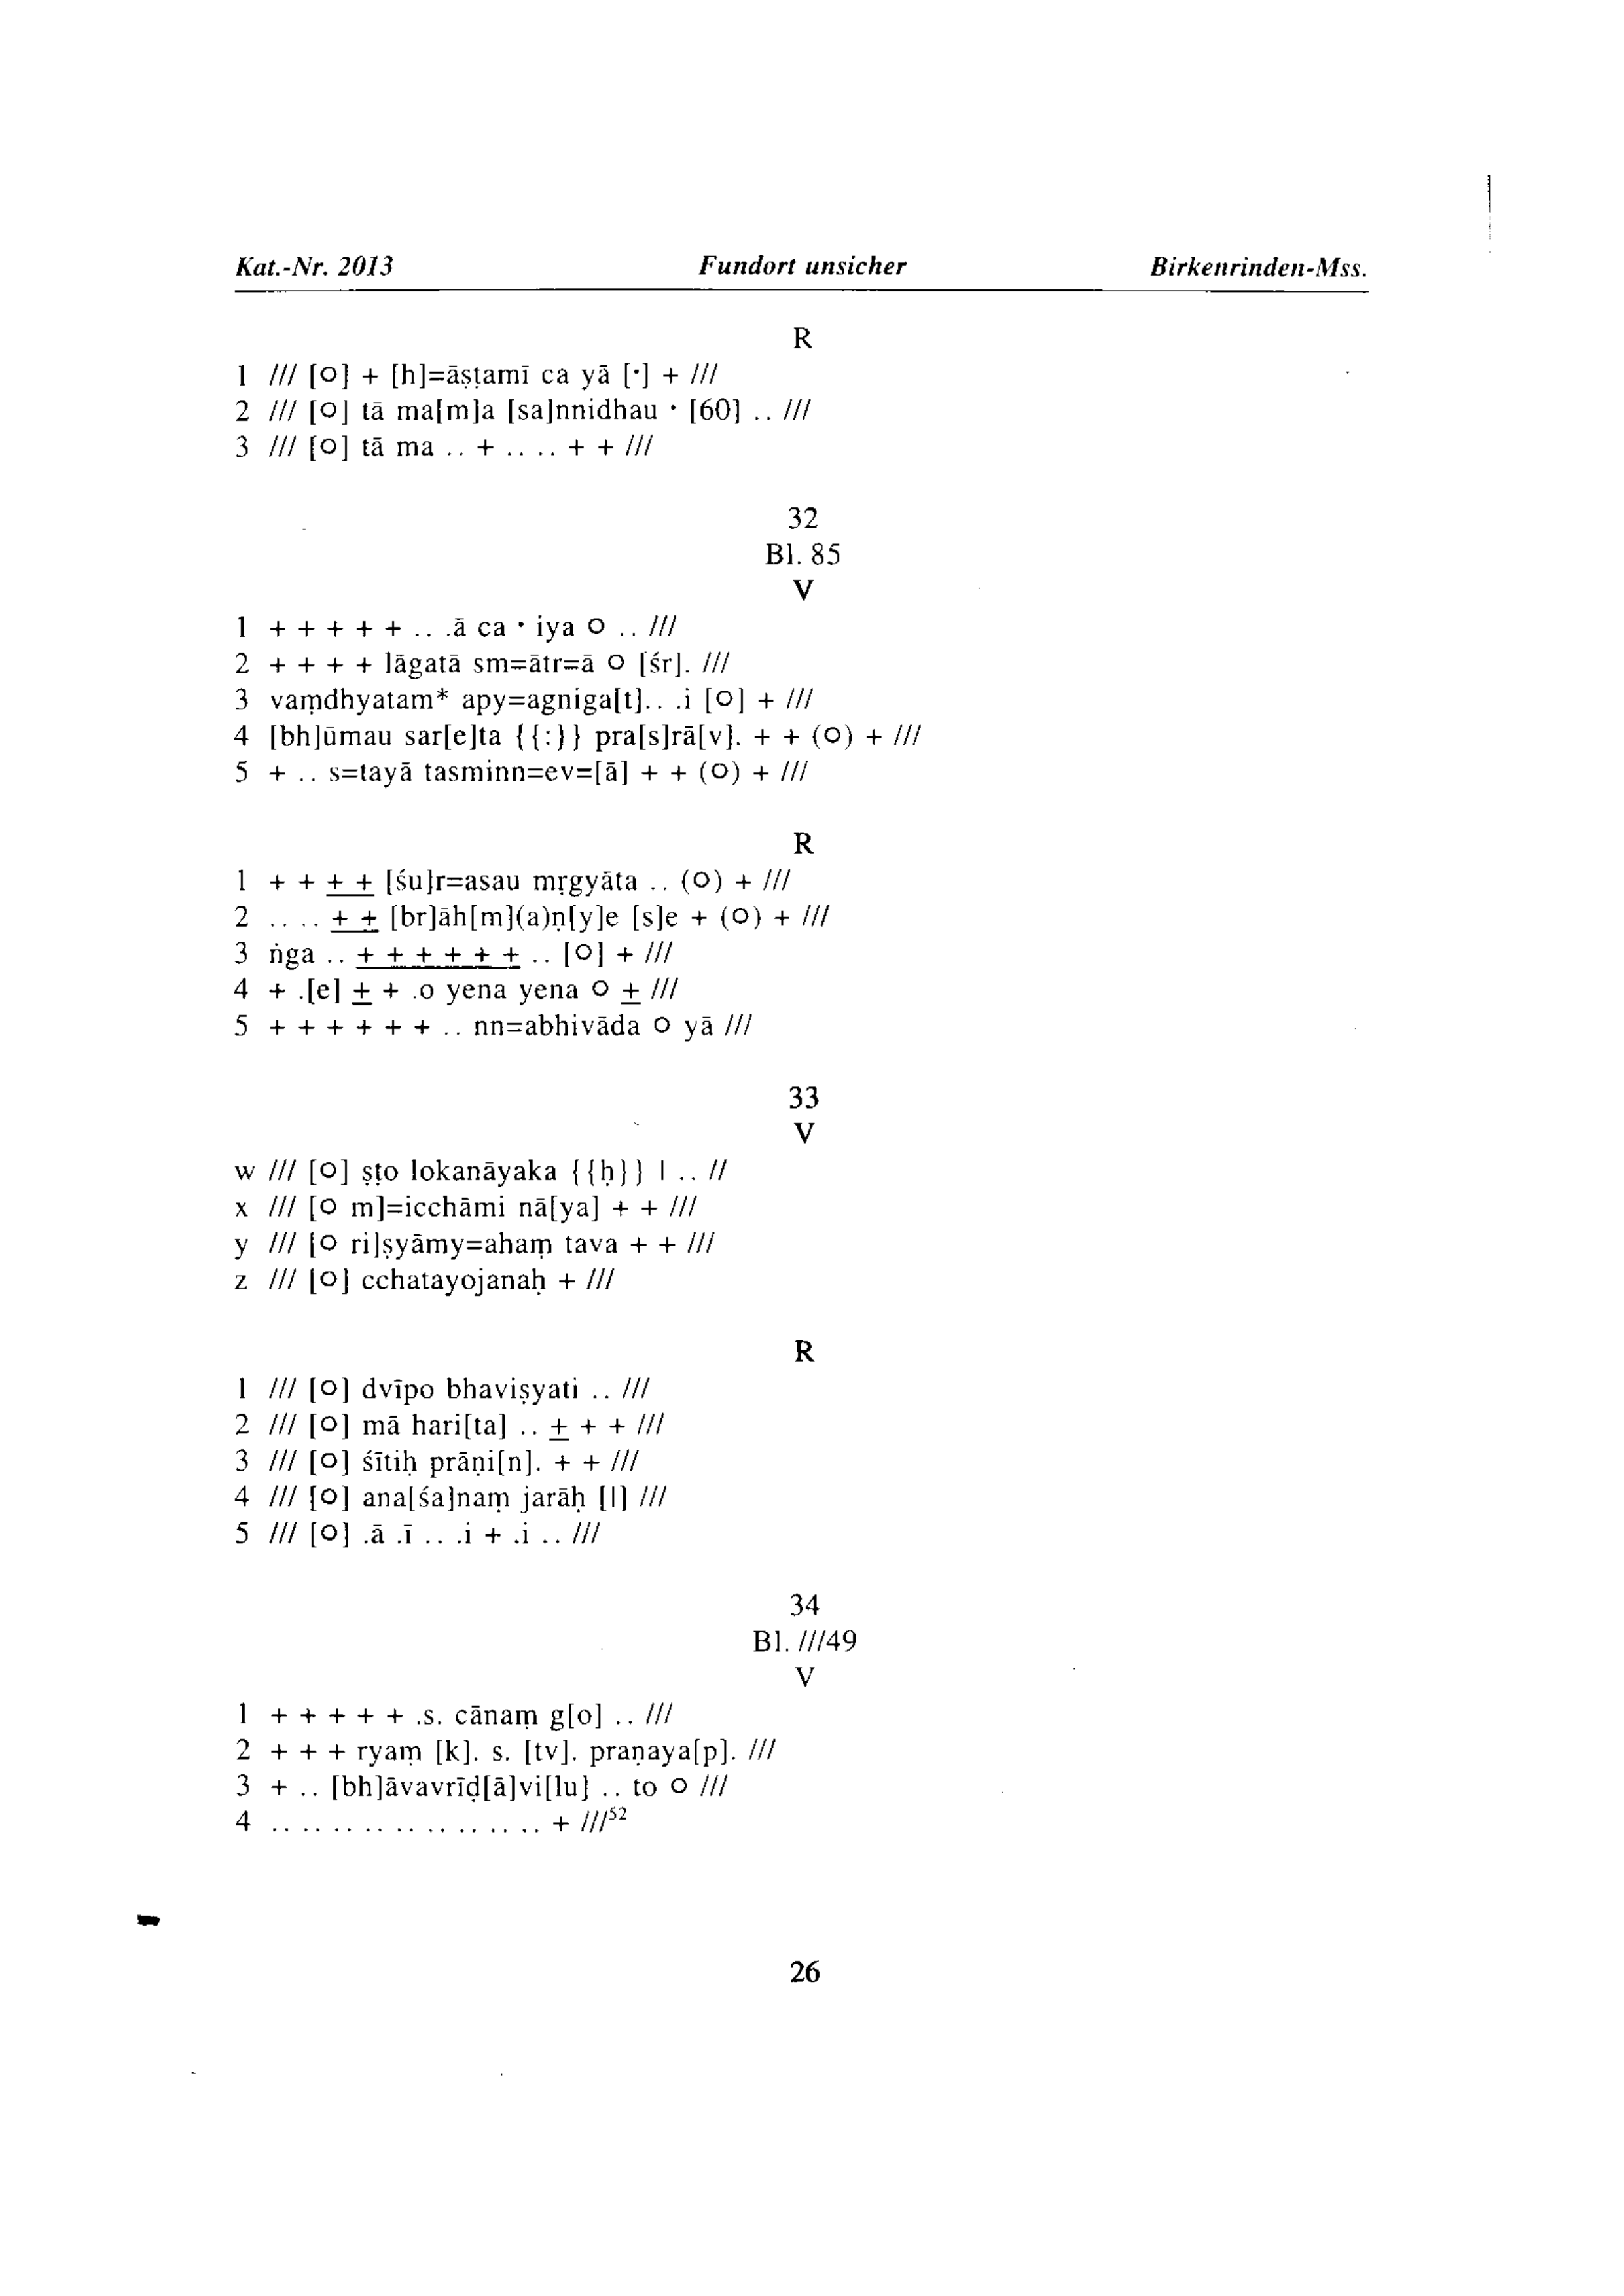 Kat.-Nr. 2013 Fundort unsicher Birkenrinden-Mss.
R
1 /// [O] + [h]=āṣṭamī ca yā [·] + ///
2 /// [O] tā ma[m]a [sa]nnidhau · [60] .. ///
3 /// [O] tā ma .. + .. .. + + ///
32
Bl. 85
V
1 + + + + + .. .ā ca · iya O .. ///
2 + + + + lāgatā sm=ātr=ā O [śr]. ///
3 vaṃdhyatam* apy=agniga[t].. .i [O] + ///
4 [bh]ūmau sar[e]ta {{:}} pra[s]rā[v]. + + (O) + ///
5 + .. s=tayā tasminn=ev=[ā] + + (O) + ///
R
1 + + + + [śu]r=asau mṛgyāta .. (O) + ///
2 .. .. + + [br]āh[m](a)ṇ[y]e [s]e + (O) + ///
3 ṅga .. + + + + + + .. [O] + ///
4 + .[e] + + .o yena yena O + ///
5 + + + + + + .. nn=abhivāda O yā ///
33
V
w /// [O] ṣṭo lokanāyaka {{ḥ}} | .. //
x /// [O m]=icchāmi nā[ya] + + ///
y /// [O ri]ṣyāmy=ahaṃ tava + + ///
z /// [O] cchatayojanaḥ + ///
R
1 /// [O] dvīpo bhaviṣyati .. ///
2 /// [O] mā hari[ta] .. + + + ///
3 /// [O] śītiḥ prāṇi[n]. + + ///
4 /// [O] ana[śa]naṃ jarāḥ [|] ///
5 /// [O] .ā .ī .. .i + .i .. ///
34
Bl. ///49
V
1 + + + + + .s. cānaṃ g[o] .. ///
2 + + + ryaṃ [k]. s. [tv]. praṇaya[p]. ///
3 + .. [bh]āvavrīḍ[ā]vi[lu] .. to O ///
4 .. .. .. .. .. .. .. .. .. + ///52
26